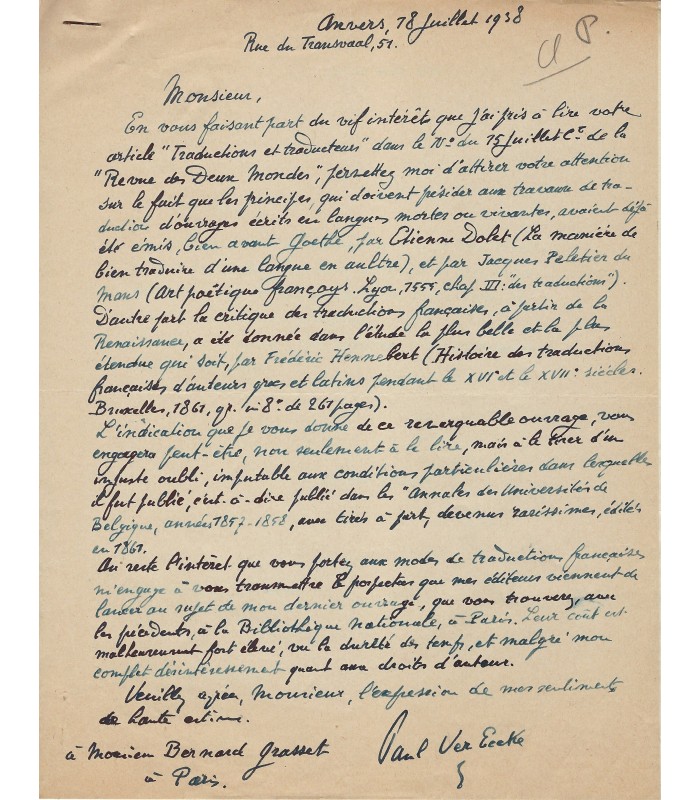 Anvers, 18 Juillet 1938
Rue du Transvaal, 51.
Monsieur,
En vous faisant part du vif intérêts que j'ai pris à lire votre
article "Traductions et traducteurs" dans le No du 15 Juillet Ct de la
"Revue des Deux Mondes", permettez moi d'attirer votre attention
sur le fait que les principes, qui doivent présider aux travaux de tra-
duction d'ouvrages écrits en langues mortes ou vivantes, avaient déjà
été émis, bien avant Goethe, par Etienne Dolet (La manière de
bien traduire d'une langue en aultre), et par Jacques Peletier du
Mans (Art poétique françoys. Lyon, 1555, chap. VI: "des traductions").
D'autre part la critique des traductions françaises, à partir de la
Renaissance, a été donnée dans l'étude la plus belle et la plus
étendue qui soit, par Frédéric Hennebert (Histoire des traductions
françaises d'auteurs grecs et latins pendant le XVIe et le XVIIe siècles.
Bruxelles, 1861, gr. in 8o. de 261 pages).
L'indication que je vous donne de ce remarquable ouvrage, vous
engagera peut-être, non seulement à le lire, mais à le tirer d'un
injuste oubli, imputable aux conditions particulières dans lesquelles
il fut publié, c'est-à-dire publié dans les "Annales des Universités de
Belgique, années 1857-1858, avec tirés à part, devenus rarissimes, édités
en 1861.
Au reste l'intéret que vous portez aux modes de traductions françaises
m'engage à vous transmettre le prospectus que mes éditeurs viennent de
lancer au sujet de mon dernier ouvrage, que vous trouverez, avec
les précédents, à la Bibliothèque nationale, à Paris. Leur coût est
malheureusement fort élevé, vu la dureté des temps, et malgré mon
complet désintéressement quant aux droits d'auteur.
Veuillez agréer, Monsieur, l'expression de mes sentiments
de haute estime.
Paul Ver Eecke
à Monsieur Bernard Grasset
à Paris.